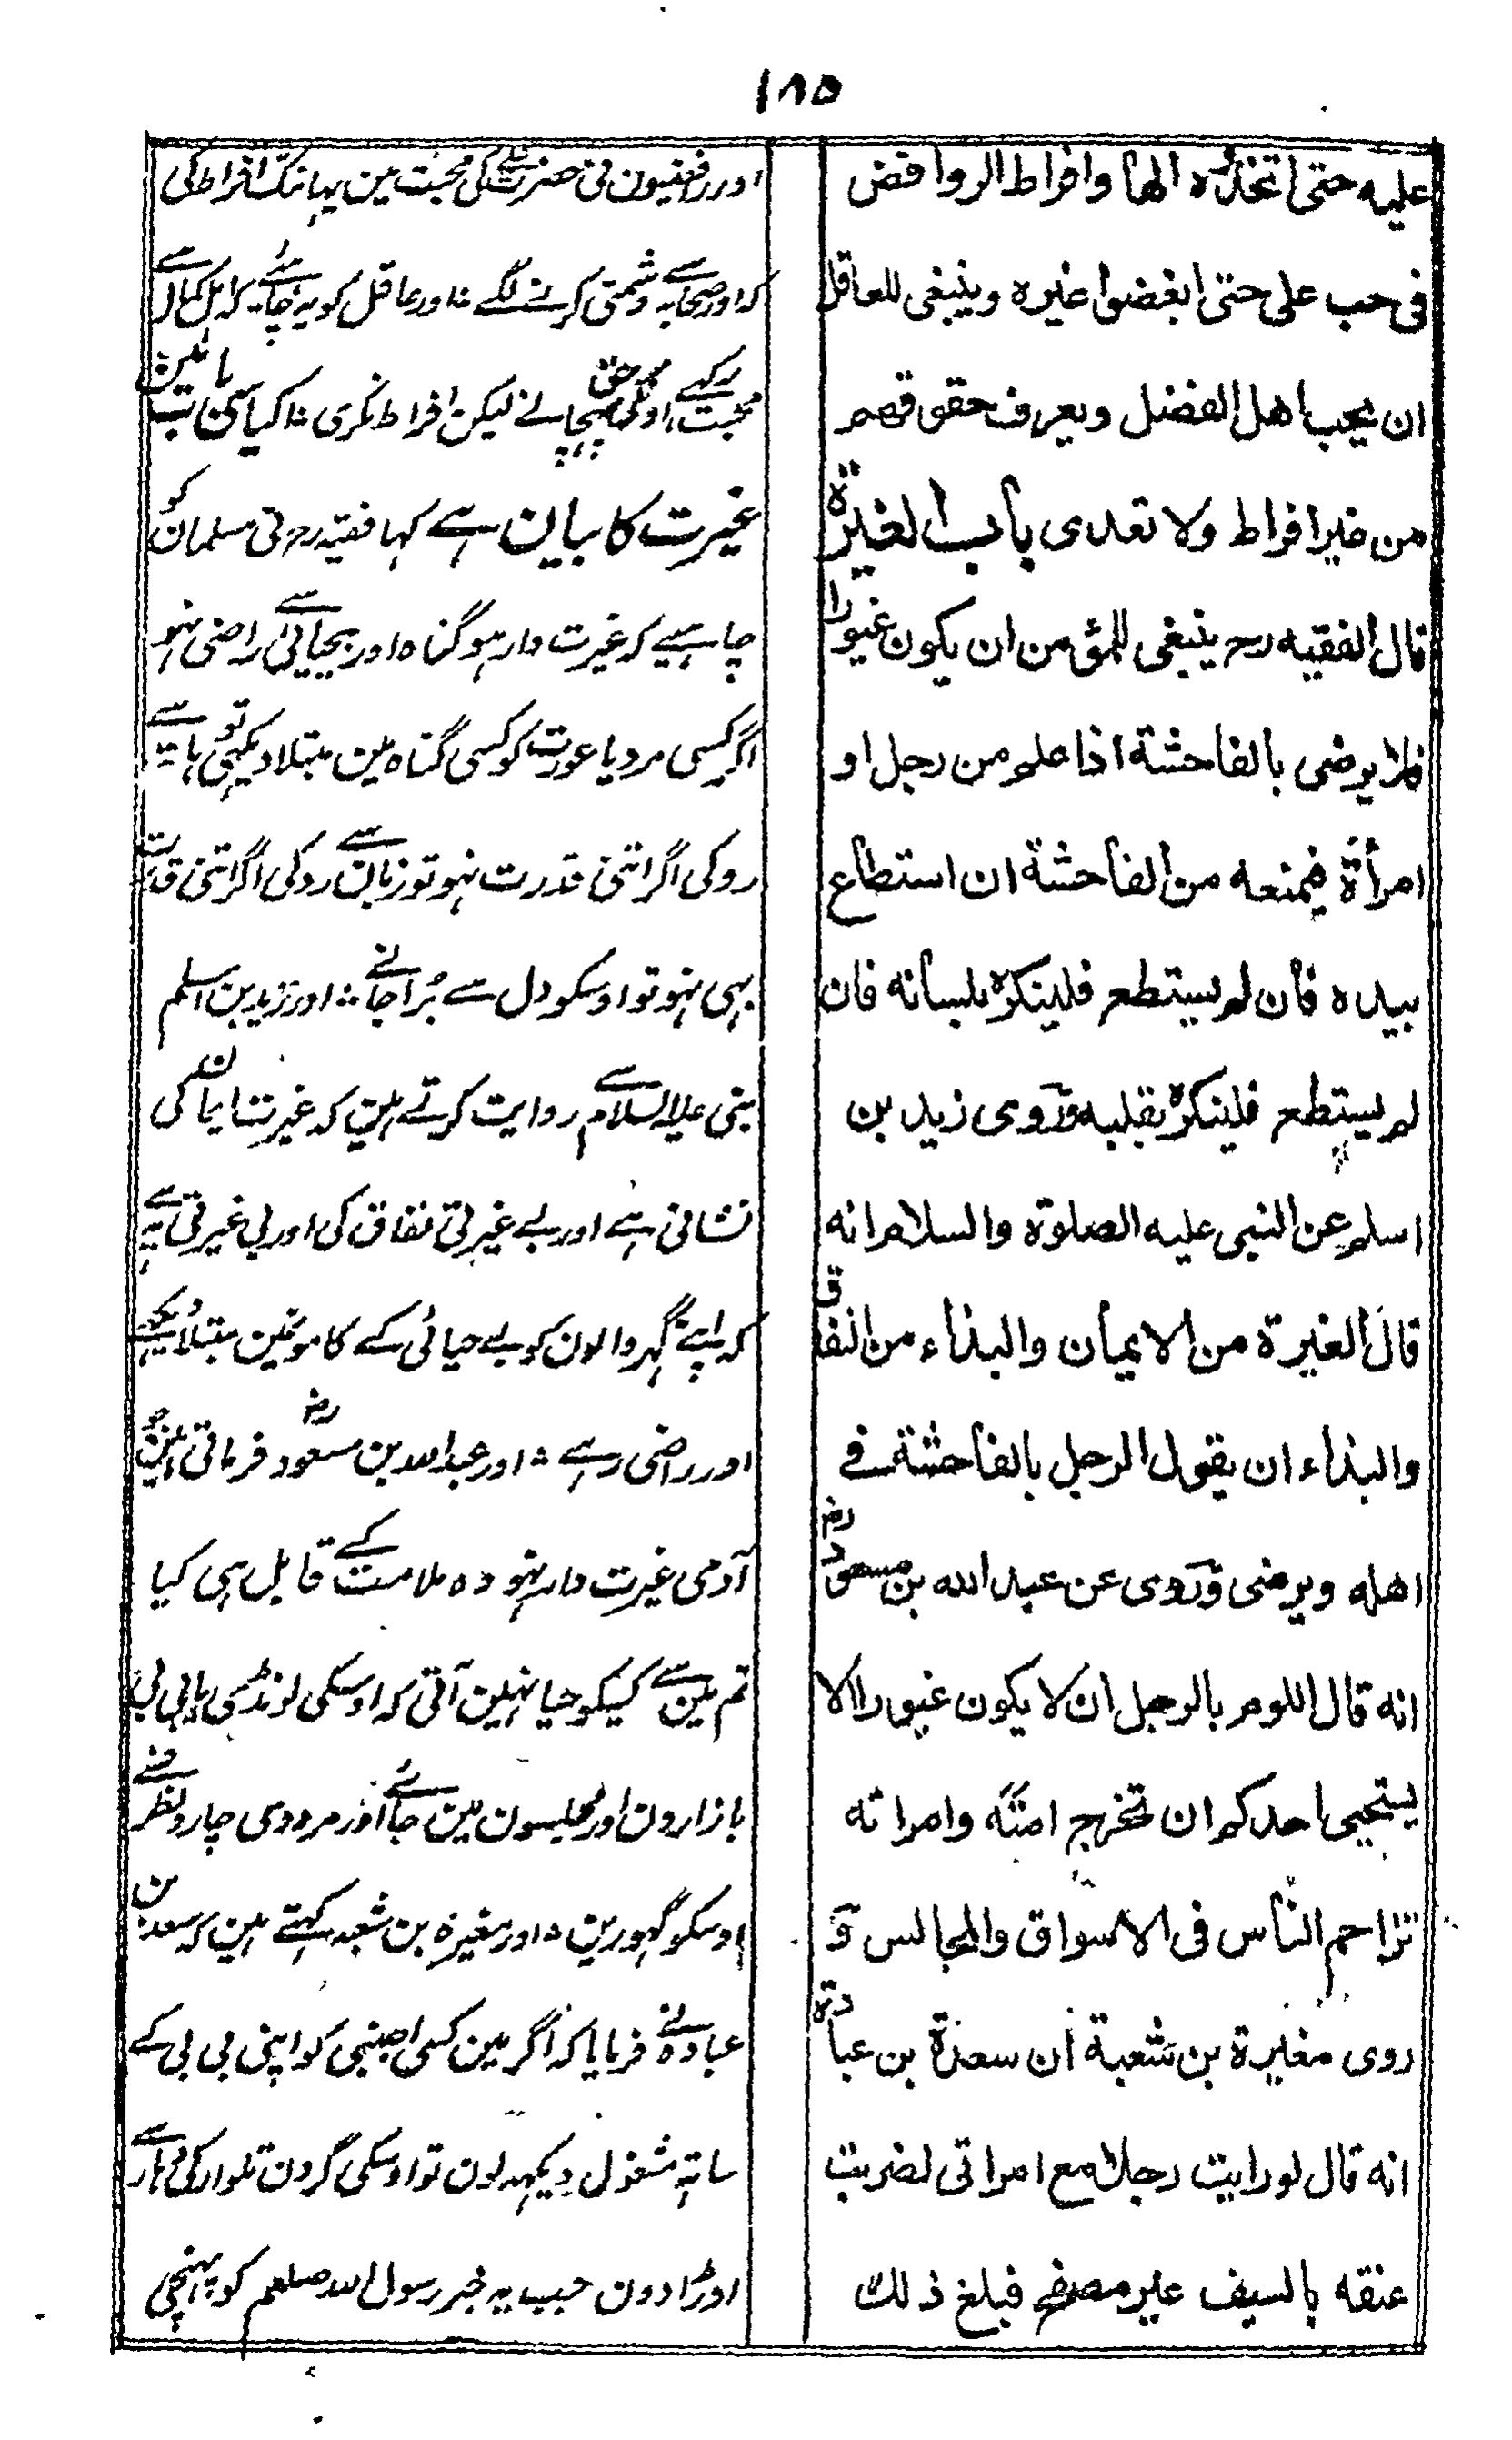 ١٨٥
عليه حتى اتخذوه الها وافراط الروافض
فى حب على حتى ابغضوا غيره وينبغى للعاقل
ان يحب اهل الفضل ويعرف حقوقهم
من غير افراط ولا تعدى باب الغيرة
قال الفقيه رح ينبغى للمؤمن ان يكون غيورا
فلا يرضى بالفاحشة اذا علم من رجل او
امرأة فيمنعه من الفاحشة ان استطاع
بيده فان لم يستطع فلينكره بلسانه فان
لم يستطع فلينكره بقلبه وروى زيد بن
اسلم عن النبى عليه الصلوة والسلام انه
قال الغيرة من الايمان والبذاء من النفاق
والبذاء ان يقول الرجل بالفاحشة فے
اهله ويرضى وروى عن عبد الله بن مسعود رض
انه قال اللوم بالرجل ان لا يكون غيورا الا
يستحيى احدكم ان تخرج امته وامراته
تزاحم الناس فى الاسواق والمجالس و
روى مغيرة بن شعبة ان سعدة بن عبادة
انه قال لو رايت رجلا مع امراتى لضربت
عنقه بالسيف غير مصفح فبلغ ذلك
اور رافضیون نی حضرت علی کی محبت مین یہانتک افراط کی
کہ اور صحابہ سے دشمنی کرنے لگے ؞ اور عاقل کو یہ چاہئے کہ اہل کمال سے
محبت رکہے اور اونکی حق پہچانے لیکن افراط نکری ؞ اکیاسی باب مین
غیرت کا بیان ہے کہا فقیہ رح نی مسلمان کو
چاہیے کہ غیرت دار ہو گناہ اور بیحیائی سے راضی نہو
اگر کسی مرد یا عورت کو کسی گناہ مین مبتلا دیکہی تو ہاتہ سے
روکی اگر اتنی قدرت نہو تو زبان سے روکی اگر اتنی قدرت
بہی نہو تو اوسکو دل سے بُرا جانے ؞ اور زید بن اسلم
نبی علیہ السلام سے روایت کرتے ہین کہ غیرت ایمان کی
نشانی ہے اور بے غیرتی نفاق کی اور بی غیرتی یہ ہے
کہ اپنے گہر والون کو بے حیائی کے کامونمین مبتلا دیکہے
اور راضی رہے ؞ اور عبد اللہ بن مسعود رض فرماتی ہین جو
آدمی غیرت دار نہو وہ ملامت کے قابل ہی کیا
تم مین سے کسیکو حیا نہین آتی کہ اوسکی لونڈی یا بی بی
بازارون اور مجلسون مین جائے اور مردوی چار و نظر سے
اوسکو گہورین ؞ اور مغیرہ بن شعبہ کہتے ہین کہ سعد بن
عبادہ نے فرمایا کہ اگر مین کسی اجنبی کو اپنی بی بی کے
ساتہ مشغول دیکہہ لون تو اوسکی گردن تلوار کی دہار سے
اوڑا دون جب یہ خبر رسول اللہ صلعم کو پہنچی